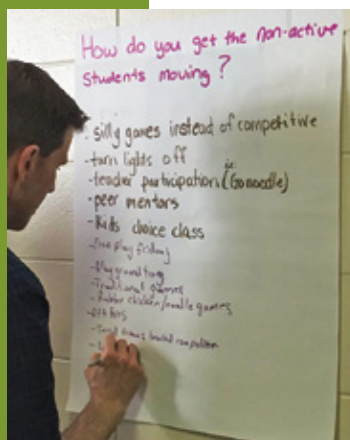 How do you get the non-active
students moving?
- silly games instead of competitive
- turn lights off
- teacher participation (ie: Gonoodle)
- peer mentors
- Kids choice class
- free play friday
- playground
- Traditional games
- Rubber chicken/noodle games